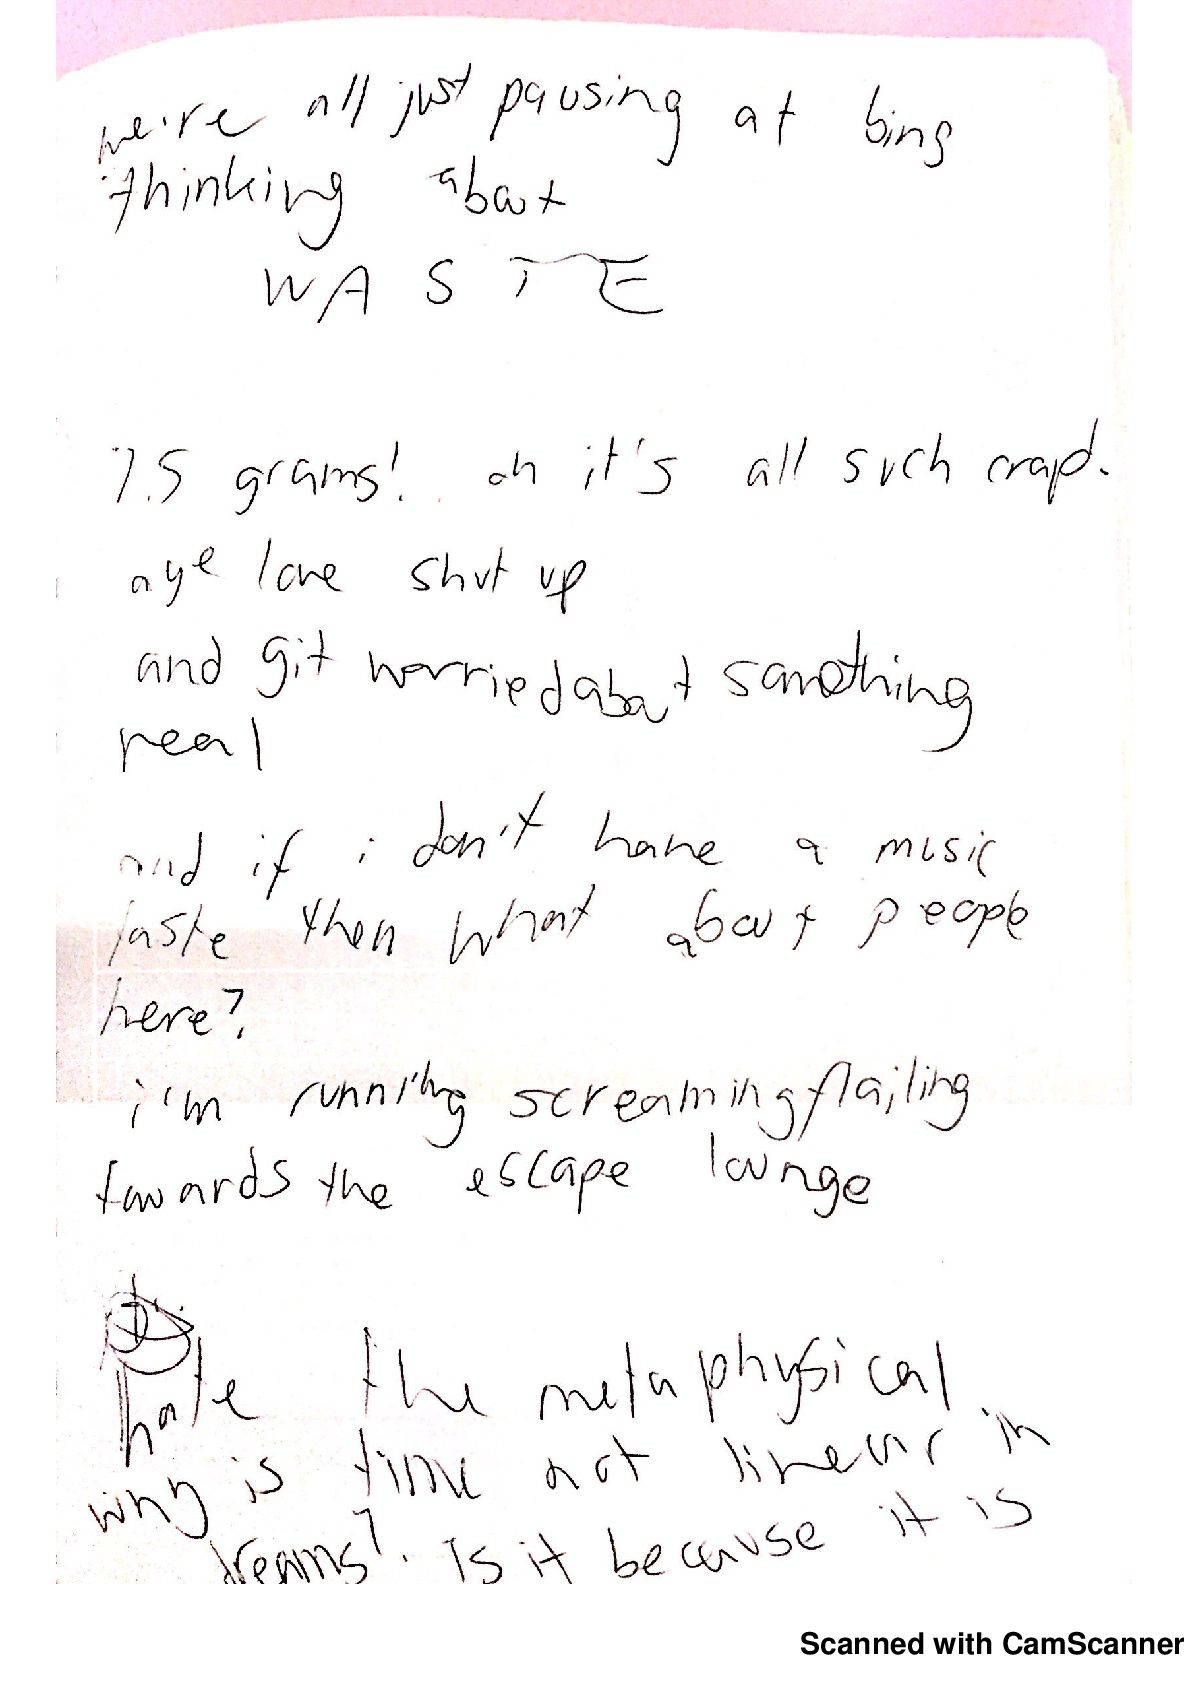 we're all just pausing at bing
thinking about
WASTE
7.5 grams! oh it's all such crap.
aye love shut up
and git worried about something
real
and if i don't have a music
taste then what about people
here?
i'm running screaming flailing
towards the escape lounge
hate the metaphysical
why is time not linear in
dreams? Is it because it is
Scanned with CamScanner